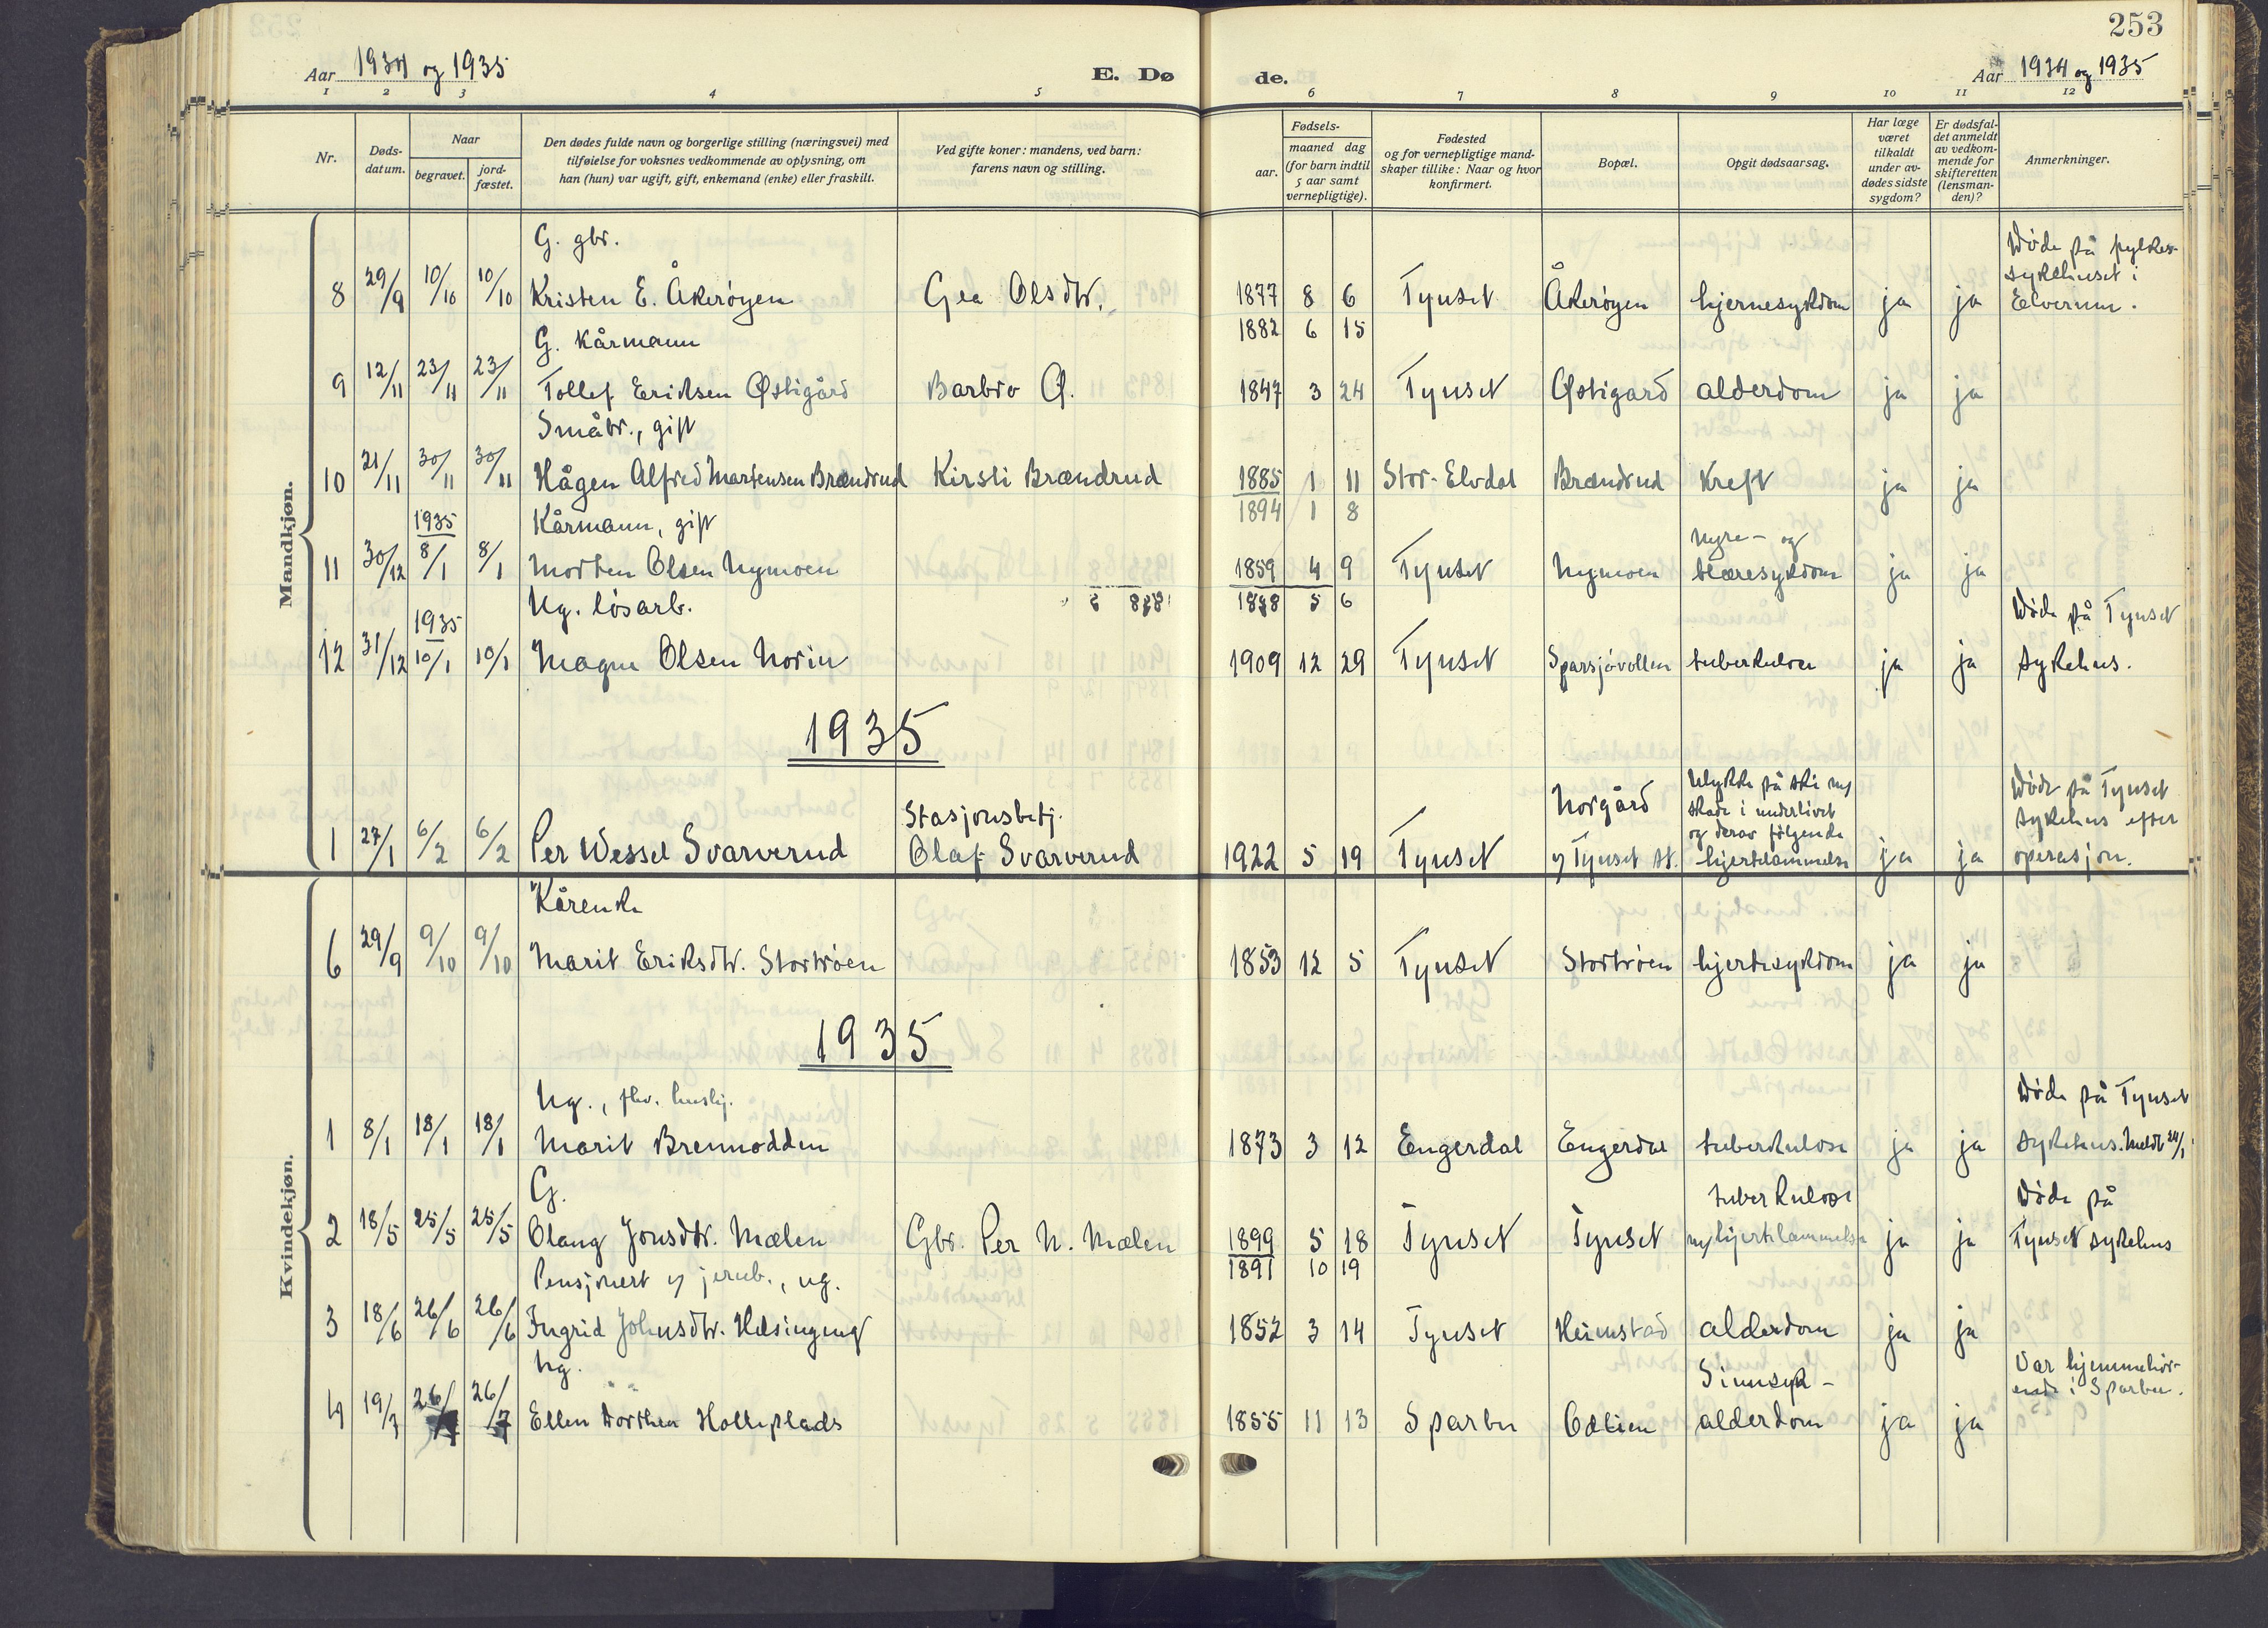 253
Aar 1934 og 1935
E. Dø de.
Aar 1934 og 1935
1 2 3 4 5 6 7 8 9 10 11 12
Nr.
Døds-
datum.
Naar
begravet.
jord-
fæstet.
Den dødes fulde navn og borgerlige stilling (næringsvei) med
tilføielse for voksnes vedkommende av oplysning, om
han (hun) var ugift, gift, enkemand (enke) eller fraskilt.
Ved gifte koner: mandens, ved barn:
farens navn og stilling.
Fødsels-
aar.
maaned dag
(for barn indtil
5 aar samt
vernepligtige).
Fødested
og for vernepligtige mand-
skaper tillike: Naar og hvor
konfirmert.
Bopæl.
Opgit dødsaarsag.
Har læge
været
tilkaldt
under av-
dødes sidste
sygdom?
Er dødsfal-
det anmeldt
av vedkom-
mende for
skifteretten
(lensman-
den)?
Anmerkninger.
Mandkjøn.
G. gbr.
8 29/9 10/10 10/10 Kristen E. Åkerøyen Gea Olsdtr. 1877 8 6 Tynset Åkerøyen hjernesykdom ja ja
Døde på fylkes-
sykehuset i
Elverum.
1882 6 15
G. Kårmann
9 12/11 23/11 23/11 Tollef Eriksen Østigård Barbro Ø. 1847 3 24 Tynset Østigard alderdom ja ja
Småbr., gift
10 21/11 30/11 30/11 Hågen Alfred Martensen Brændrud Kirsti Brændrud 1885 1 11 Stor-Elvdal Brændrud Kreft ja ja
1894 1 8
1935
Kårmann, gift
11 30/12 8/1 8/1 Morten Olsen Nymoen 1859 4 9 Tynset Nymoen nyre- og
blæresykdom ja ja
5 6
1935
Ug. løsarb.
12 31/12 10/1 10/1 Magne Olsen Norin 1909 12 29 Tynset Sparsjøvollen tuberkulose ja ja
Døde på Tynset
sykehus.
1935
1 27/1 6/2 6/2 Per Wessel Svarverud
Stasjonsbetj.
Olaf Svarverud 1922 5 19 Tynset
Norgård
v/ Tynset st.
Ulykke på ski m/
skade i underlivet
og derav følgende
hjertelammelse ja ja
Døde på Tynset
sykehus efter
operasjon.
Kvindekjøn.
Kårenke
6 29/9 9/10 9/10 Marit Eriksdtr. Stortrøen 1853 12 5 Tynset Stortrøen hjertesykdom ja ja
1935
Ug., fhv. hushj.
1 8/1 18/1 18/1 Marit Brennodden 1873 3 12 Engerdal Engerdal tuberkulose ja ja
Døde på Tynset
sykehus. Meldt 24/1
G.
2 18/5 25/5 25/5 Olaug Jonsdtr. Mælen Gbr. Per N. Mælen 1899 5 18 Tynset Tynset
tuberkulose
m/ hjertelammelse ja ja
Døde på
Tynset sykehus
1891 10 19
Pensjonert v/ jernb., ug.
3 18/6 26/6 26/6 Ingrid Johnsdtr. 1852 3 14 Tynset Heimstad alderdom ja ja
Ug.
4 19/7 26/7 26/7 Ellen Dorthea Holleplads 1855 11 13 Sparbu Odlien
Sinnsyk-
alderdom ja ja
Var hjemmehør-
ende i Sparbu.